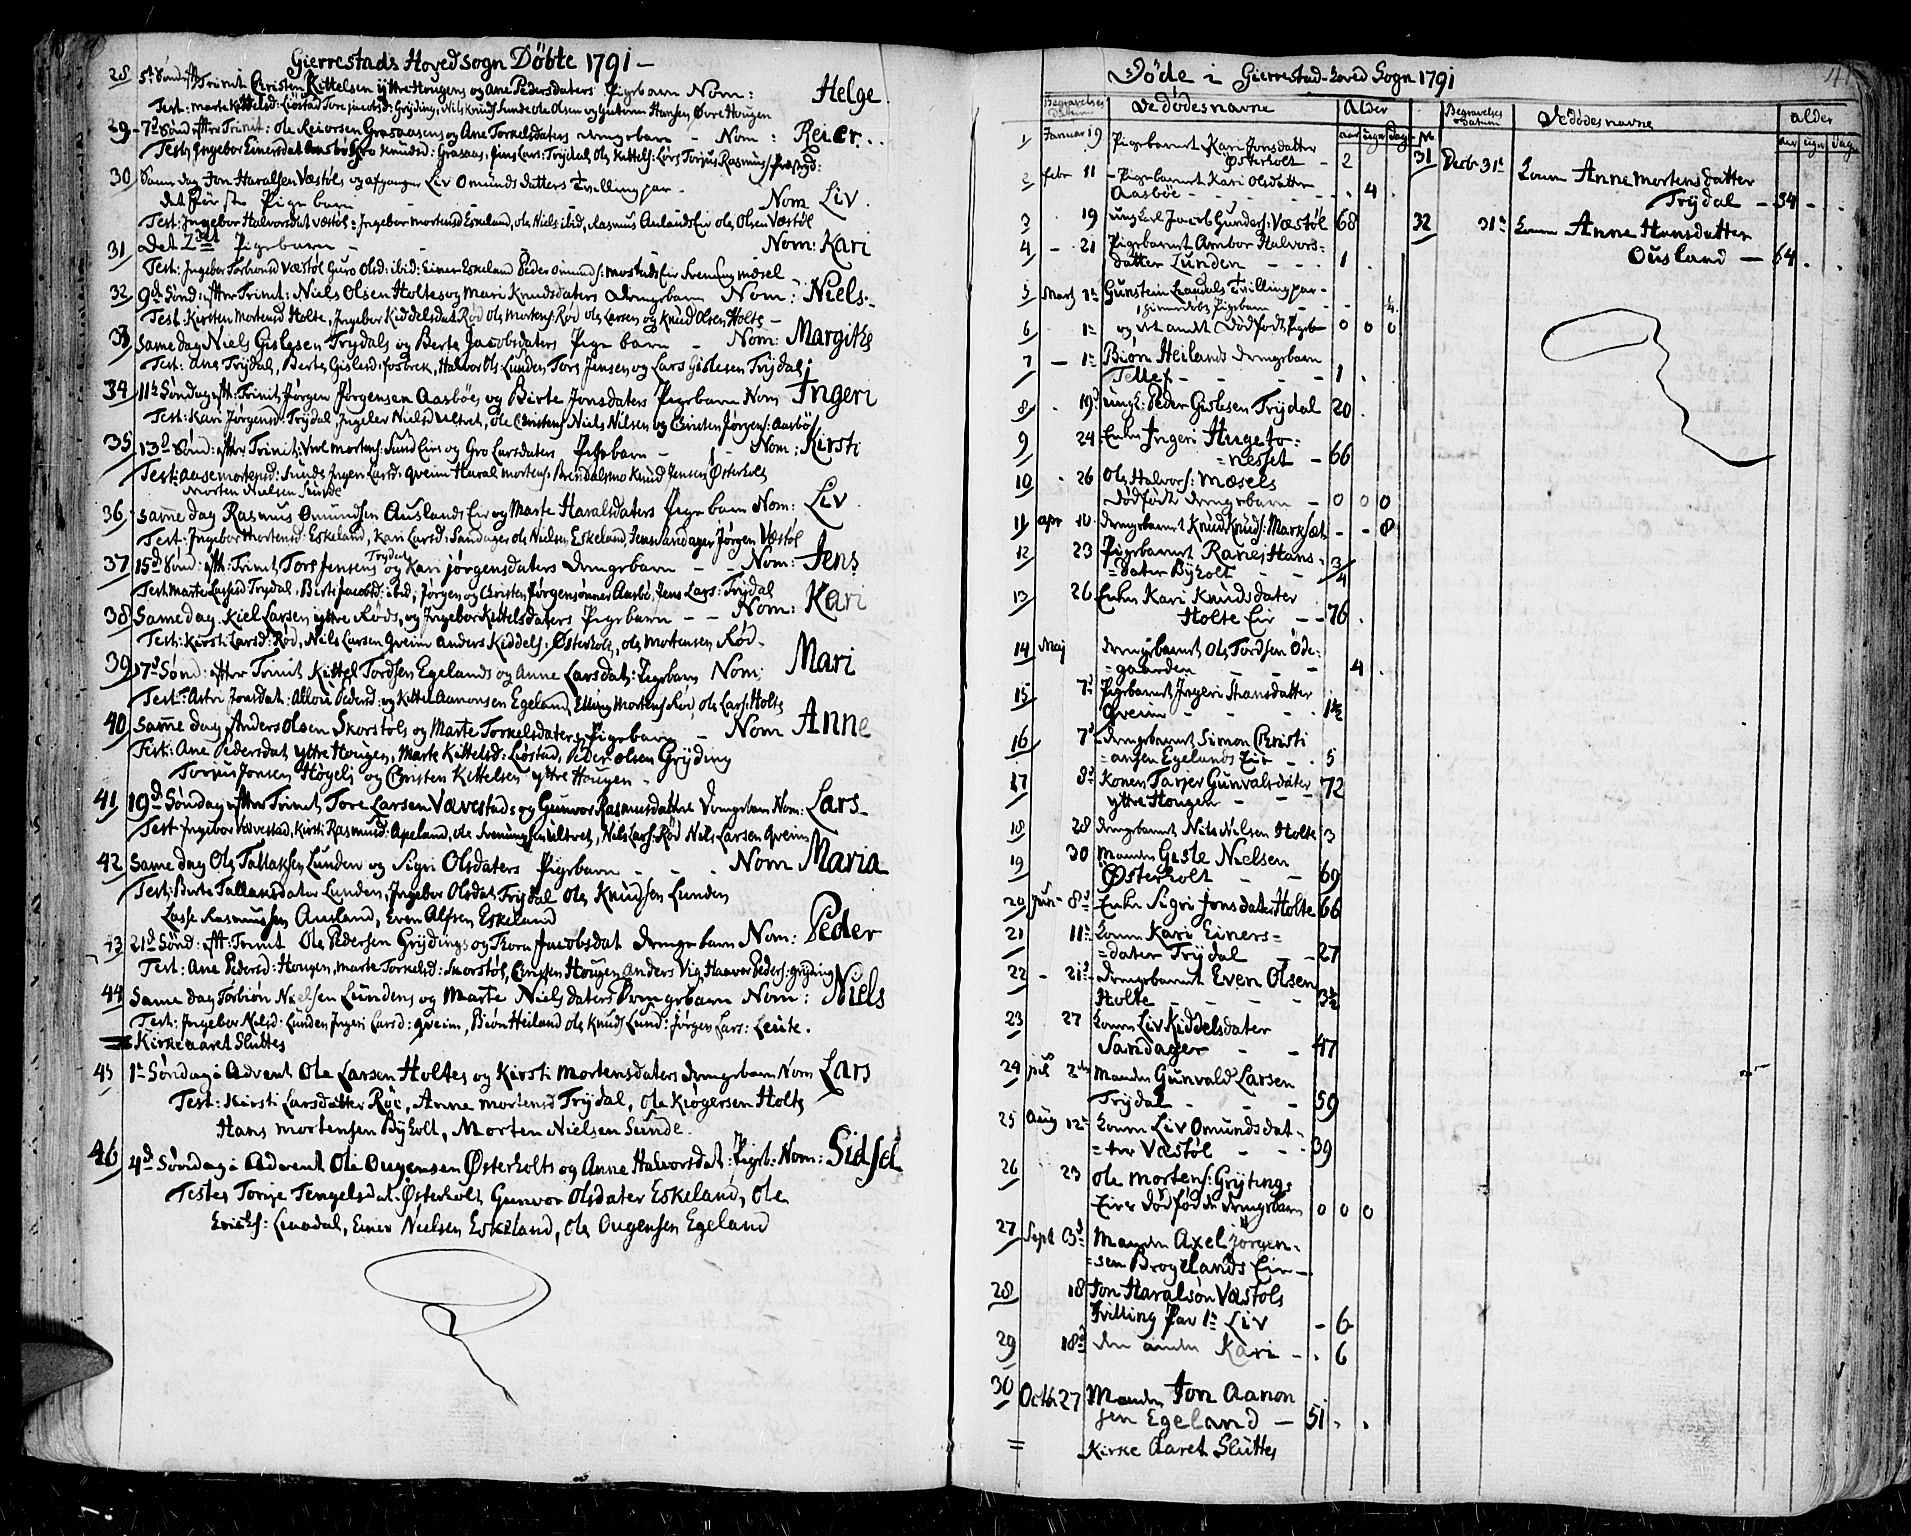 Gierrestads Hovedsogn Döbte 1791 –
28 5t Sønd: efter Trinit Christen Kittelsen yttre Hougens og Ane Pedersdaters Pigebarn Nom: Helge
Test: Marte Kittelsd: Liøstad Tore Jacobsd: Gryding, Nils Knuds Sunde Ole Olsen og Guttorm Hansen Øvre Hougen
29 – 7d Sønd: efter Trinit: Ole Reiersen Grasaasens og Ane Torkelsdaters drengebarn – Nom: Reier
Test: Ingebor Einersdat Aasbö Gro Knudsd: Grasaas, Jens Lars: Trydal Ole Kittels: Lars Torjus Rasmus
30 Same dag Jon Haralsen Væstöls og afgangne Liv Omundsdatters Tvilling par –
det förste Pigebarn – Nom Liv
Test: Ingebor Halvorsdat Væstöl: Ingebor Mortensd Eskeland, Ole Niels ibid, Rasmus Auslands Eie Ole Olsen Væstöl
31 Det 2det Pigebarn – Nom: Kari
Test: Ingebor Torbionsd Væstöl Guro Olsd: ibid: Einer Eskeland Peder Omunds: Eie Svenung Mæsel
32 9d Sønd: efter Trinit: Niels Olsen Holtes og Mari Knudsdaters Drengebarn Nom: Niels –
Test: Kirsten Mortensd Holte, Ingebor Kiddelsdat Röd Ole Mortens: Röd Ole Larsen og Knud Olsen Holte –
33 Same dag Niels Gislesen Trydals og Berte Jacobsdaters Pige barn – Nom: Margithe
Test: Ane Trydal, Berte Gislesd: Fosbrek, Halvor Ols: Lunden Tors Jensen og Lars Gislesen Trydal
34 11te Søndag eft: Trinit Jörgen Jörgensen Aasböes og Birte Jonsdaters Pigebarn Nom Ingeri
Test: Kari Jörgensd: Trydal, Ingeler Nielsd Ultvet, Ole Christens Niels Nilsen og Christen Jörgens: Aasbö
35 13d Sønd: efter Trinit: Mortens: Sund Eie og Gro Larsdaters Pigebarn – Nom: Kirsti
Test: Aase Mortensd: Sunde Inger Larsd: Qveim Haral Mortens: Brendalsmo Knud Jensen Østerholt
Morten Nielsen Sunde
36 same dag Rasmus Omundsen Auslands Eie og Marte Haralsdaters Pigebarn Nom: Liv
Test: Ingebor Mortensd: Eskeland, Kari Larsd: Sandager Ole Nielsen Eskeland, Jens Sandager Jörgen Væstöl
37 15d Sønd: eft: Trinit Tors Jensens Trydal og Kari Jörgensdaters Drengebarn – – Nom: Jens
Test Marte Larsd Trydal, Birte Jacobsd: ibid, Jörgen og Christen Jørgensønner Aasbö, Jens Lars: Trydal
38 Same dag Kiel Larsen yttre Röds, og Ingebor Kittelsdaters Pigebarn – – Nom: Kari
Test: Kirsti Larsd: Röd, Niels Larsen Qveim Anders Kiddels: Østerholt, Ole Mortensen Röd –
39 17d Sønd: efter Trinit Kittel Tordsen Egelands og Anne Larsdat: Pigebarn Nom: Mari
Test: Astri Jonsdat: Pedersd: og Kittel Aanonsen Egeland, Elling Mortens Röd, Ole Lars: Holte
40 same dag Anders Olsen Skorstöls og Marte Torkelsdaters Pigebarn – Nom Anne
Test: Ane Pedersdat yttre Hougen, Marte Kittelsd: Liøstad, Peder Olsen Gryding
Torjus Jonsen Höyeli og Christen Kittelsen yttre Hougen –
41 19d Søndag efter Trinit Tore Larsen Vævestads og Gunvor Rasmusdattre Drengebarn Nom: Lars –
Test Ingebor Vævestad, Kirsti Rasmusd: Apeland, Ole Svenungsen Ultvet, Niels Lars: Röd Niels Larsen Qveim
42 Same dag Ole Tallaksen Lunden og Sigri Olsdaters Pigebarn – – – Nom Maria
Test: Birte Tallaksdater Lunden, Ingebor Olsdat Trydal Ole Knudsen Lunden
Lasse Rasmussen Ausland, Even Alfsen Eskeland
43 21d Sønd: eft: Trinit Ole Pedersen Grydings og Thora Jacobsdat drengebarn Nom: Peder
Test: Ane Pedersd: Hougen, Marte Torkelsd: Skorstöl, Christen Hougen Anders Vig Haavor Peders: Gryding
44 Same dag Torbiön Nielsen Lundens og Marte Nielsdaters Drengebarn Nom: Niels
Test: Ingebor Nielsd: Lunden Ingeri Larsd: Qveim, Biön Heiland Ole Knuds Lund: Jörgen Lars: Leite.
Kirkeaaret Sluttes
45 1te Søndag i Advent Ole Larsen Holtes og Kirsti Mortensdaters drengebarn Nom Lars
Test: Kirsti Larsdatter Röd, Anne Mortensd Trydal, Ole Kiøgersen Holte
Hans Mortensen Byholt, Morten Nielsen Sunde.
46 4de Søndag i Advent Ole Ougensen Østerholts og Anne Halvorsdat: Pigeb: Nom: Sidsel
Testes Torje Tengelsdat. Østerholt Gunvor Olsdater Eskeland, Ole
Erichs: Lindal, Einer Nielsen Eskeland, Ole Ougensen Egeland
Døde i Gierrestad Hoved Sogn 1791
Begravelses Datum De Dødes navne Alder Begravelses Datum De Dødes navne Alder
aar uger dage No. aar uger dage
1 Januar 19 Pigebarnet Kari Jonsdatter
Østerholt – 2
2 febr 11 – Pigebarnet Kari Olsdatter
Aasböe – – . 4 .
3 19 ungkarl Jacob Gunders: Væstöl 68
4 – 21 Pigebarnet Ambor Halvors:
datter Lunden – – 1
5 Marts 1te Gunstein Laudals Tvillingpar –
Pigebarn – – ¼
6 1te og det andet Dødfødt Pigeb 0 0 0
7 – 1te Biön Heilands drengebarn
Tellef – – – 1 .
8 19d ungk: Peder Gislesen Trydal 20
9 24 Enken Ingeri Hugejo:
=nesset – 66
10 26 Ole Halvors: Mæsels
dødfødt drengebarn – 0 0 0
11 apr 10 drengebarnet Knud Knuds: Marksæt – – 8
12 23 Pigebarnet Ranei Hans
=dater Byholt – – 3/4
13 26 Enken Kari Knudsdater
Holte Eie – – 76
14 Maj drengebarnet Ole Tordsen Öde:
=gaarden – – 4 .
15 7d Pigebarnet Ingeri Hansdatter
Qveim – – – 1½
16 7d drengebarnet Simon Christi
=ansen Egelands Eie – . 5
17 8d Konen Tarjer Gunvalsdater 72
yttre Hougen – – –
18 28 drengebarnet Nils Nelsen Holte 3
19 30 Manden Gisle Nielsen
Østerholt – – 69
20 Jun – 8d Enken Sigri Jonsdater Holte 66
21 11te konen Kari Einers=
=dater Trydal – – 27
22 – 21d drengebarnet Even Olsen
Holte – – – – 3½
23 27 konen Liv Kiddelsdater
Sandager – – 47
24 jul 2den Manden Gunvald Larsen
Trydal – – – 59
25 Aug 12te konen Liv Omundsdat=
=ter Væstöl – – – 39
26 23 Ole Mortens: Grytings
Eie dødfødde drengebarn 0 0 0
27 Sept 3d Manden Axel Jörgen=
=sen Brogelands Eie –
28 18 Jon Haralsøn Væstöls
Tvilling Par 1te Liv – 6
29 18d den anden Kari – . 6
30 Octbr 27 Manden Jon Aanon
sen Egeland – 51 . .
= Kirke Aaret Sluttes
31 Decbr 31te konen Anne Mortensdatter
Trydal – 34 – .
32 31te konen Anne Hansdatter
Ousland – 64 . .